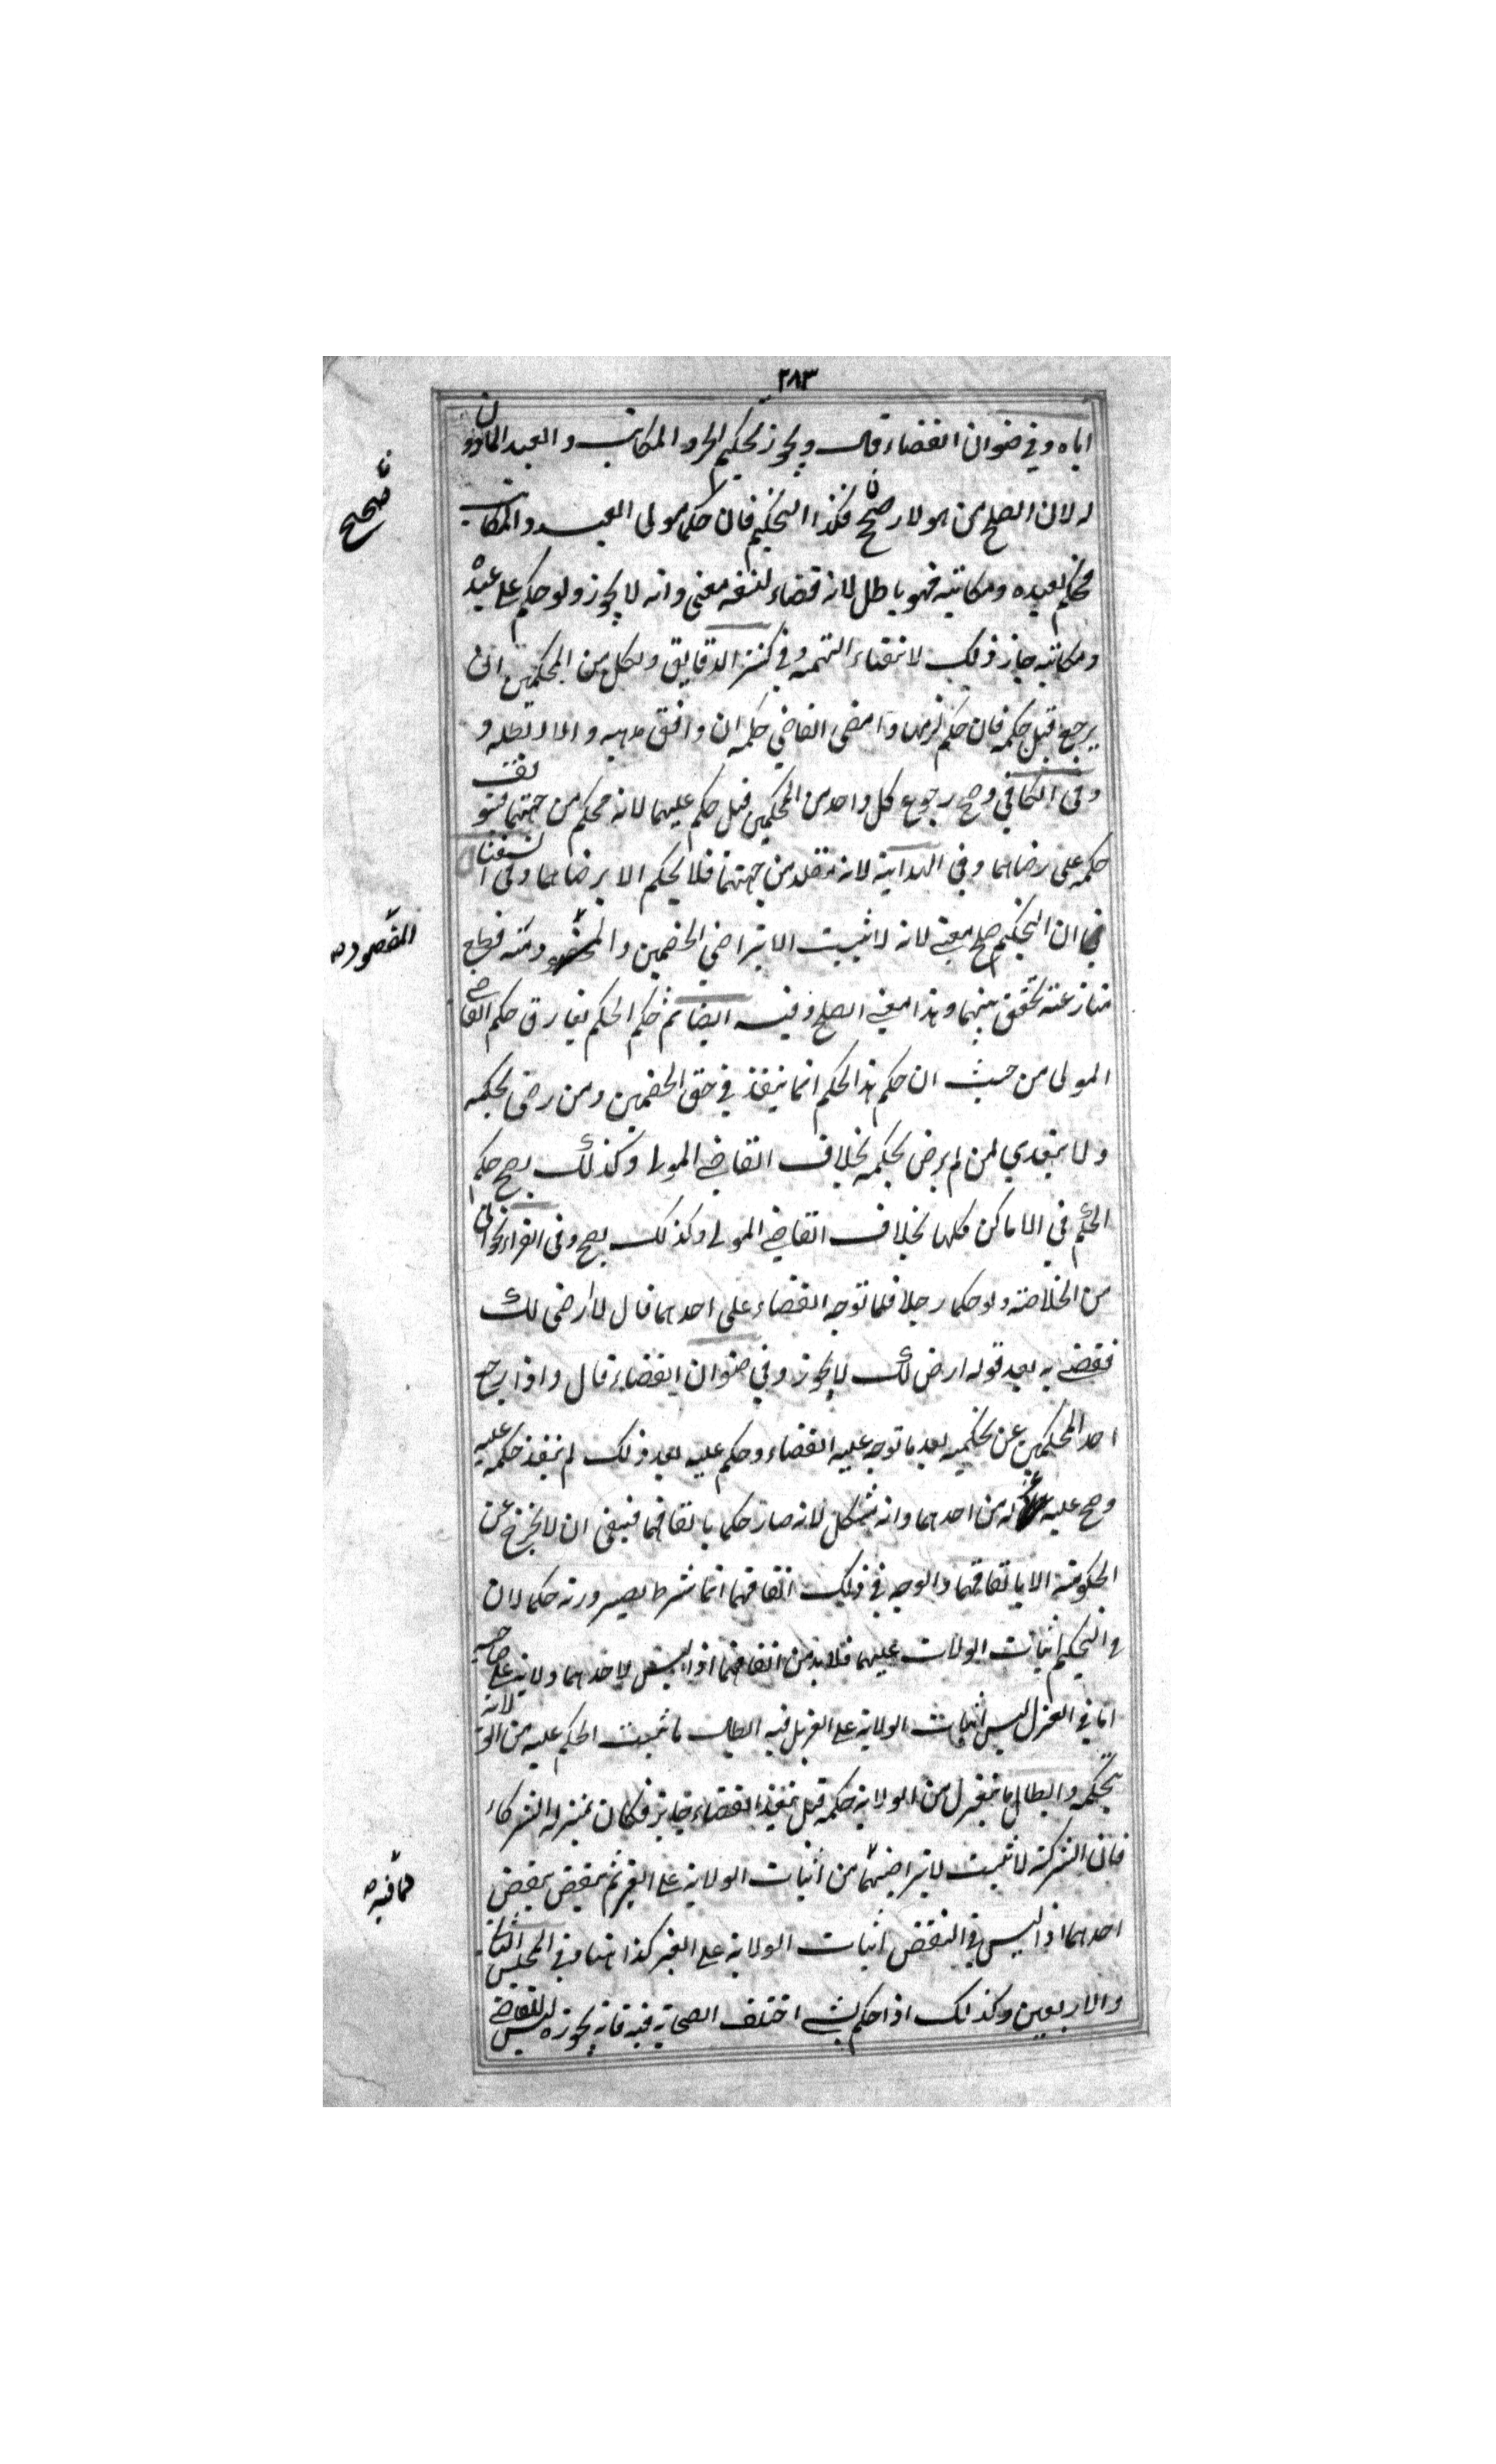 ٢٨٣
اياه وفي صنوان القضاء قال ويجوز تحكيم الحر والمكاتب والعبد الماذون
له لان الصلح من هولاء صحيح فكذا التحكيم فان حكما مولى العبد والمكاتب
فحكم لعبده ومكاتبه فهو باطل لانه قضاء لنفسه معنى وانه لا يجوز ولو حكم على عبده
ومكاتبه جاز ذلك لانتفاء التهمة وفي كنز الدقايق ولكل من المحكمين ان
يرجع قبل حكمه فان حكم لزمهما وامضى القاضي حكمه ان وافق مذهبه والا ابطله و
وفي الكافي وصح رجوع كل واحد من المحكمين قبل حكم عليهما لانه محكم من جهتهما فتوقف
حكمه على رضاهما وفي الهداية لانه مقلد من جهتهما فلا يحكم الا برضاهما وفي السغناقي
في ان التحكيم صلح معنى لانه لا يثبت الا بتراضي الخصمين والمقصود منه قطع
منازعته تحقق بينهما وهذا معنى الصلح وفيه ايضا ثم حكم الحكم يفارق حكم القاضي
المولى من حيث ان حكم هذا الحكم انما ينفذ في حق الخصمين ومن رضي بحكمه
ولا يتعدى لمن لم يرض بحكمه بخلاف القاضي المولى وكذلك يصح حكم
الحكم في الاماكن كلها بخلاف القاضي المولى وكذلك يصح وفي القراءخواني
من الخلاصة ولو حكما رجلا فلما توجه القضاء على احدهما قال لا ارضى لك
فقضى به بعد قوله ارض لك لا يجوز وفي صنوان القضاء قال واذا رجع
احد المحكمين عن تحكميه بعد ما توجه عليه القضاء وحكم عليه بعد ذلك لم ينفذ حكمه عليه
وصح عليه عزله من احدهما وانه يشكل لانه صار حكما باتفاقهما فينبغي ان لا يخرج عن
الحكومة الا باتفاقهما والوجه في ذلك اتفاقهما انما شرط لصيرورته حكما لان
في التحكيم اثبات الولات عليهما فلا بد من اتفاقهما اذ ليس لاحدهما ولاية على صاحبه
اما في العزل ليس اثبات الولاية على الغير بل فيه ابطال ما ثبت الحكم عليه من الولاية
بتحكمه وابطال ما بتغير له من الولاية حكمه قبل تنفيذ القضاء جايز فكان بمنزلة الشركاء
فان الشركة لا تثبت لا بتراضيهما من اثبات الولاية على الغير ثم ينقض بنقض
احدهما اذ ليس في النقض اثبات الولاية على الغير كذا هنا وفي المجلس الثاني
والاربعين وكذلك اذا حكم بشي اختلف الصحابة فيه فانه يجوزه ليس للقاضي
صحيح
المقصود صح
فما فيه صح